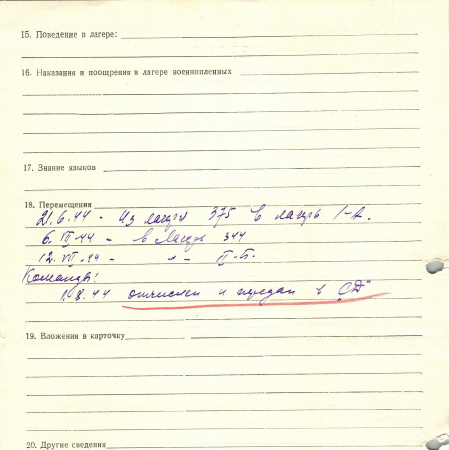 15. Поведение в лагере:
16. Наказания и поощрения в лагере военнопленных
17. Знание языков
18. Перемещения
21.6.44 - Из лагеря 375 в лагерь I-А.
6.VII-44 - в лагерь 344
12.VII-44 - -"- II-Б.
Команды:
1.8.44 отчислен и передан в „СД"
19. Вложения в карточку
20. Другие сведения